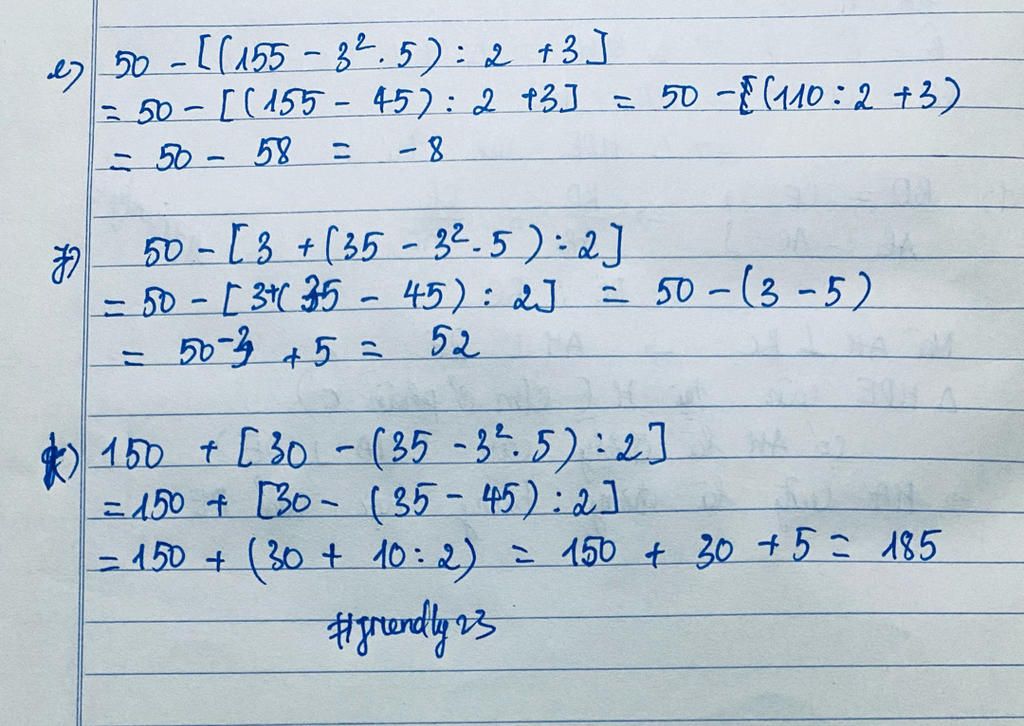 e) 50 - [(155 - 3². 5) : 2 + 3]
= 50 - [(155 - 45) : 2 + 3] = 50 - [(110 : 2 + 3)
= 50 - 58 = -8
f) 50 - [3 + (35 - 3². 5) : 2]
= 50 - [3 + (35 - 45) : 2] = 50 - (3 - 5)
= 50 - 3 + 5 = 52
k) 150 + [30 - (35 - 3². 5) : 2]
= 150 + [30 - (35 - 45) : 2]
= 150 + (30 + 10 : 2) = 150 + 30 + 5 = 185